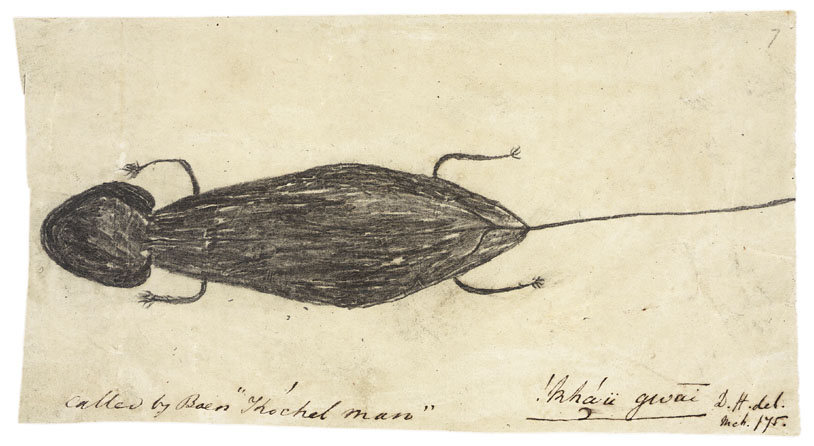 7
called by Boers "Khóchel man"
!kháü gwāī
D.H. del.
Mch. /75.